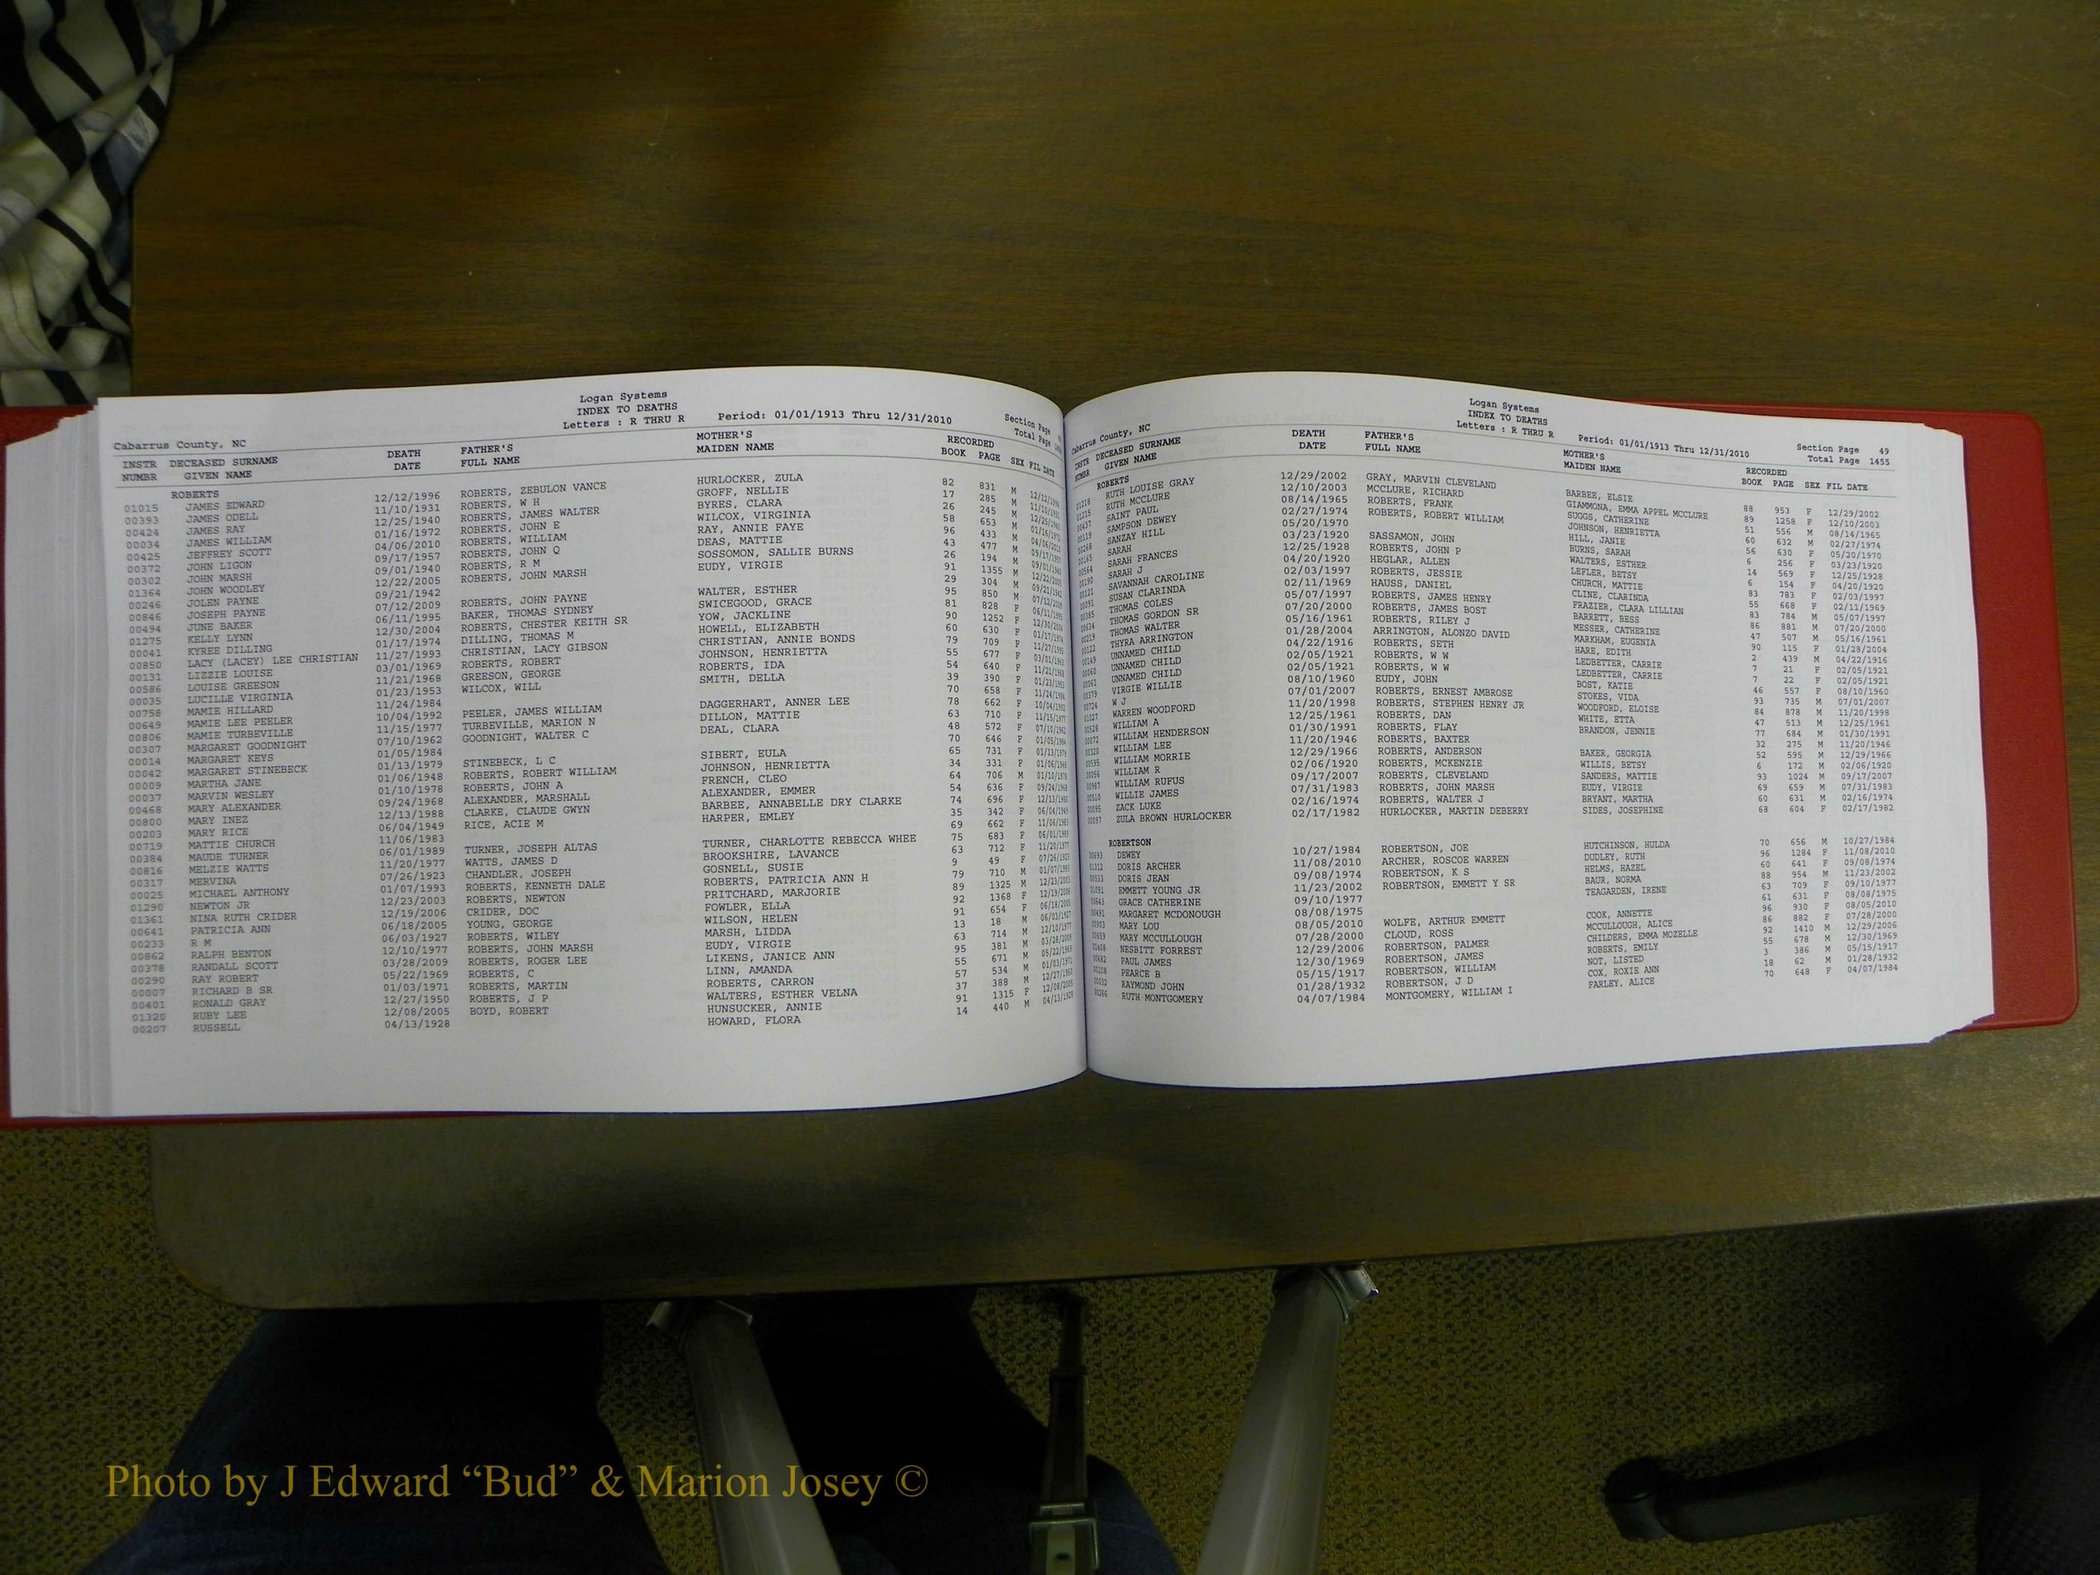 Logan Systems
INDEX TO DEATHS
Letters : R THRU R Period: 01/01/1913 Thru 12/31/2010
Section Page
Total Page
Cabarrus County, NC
INSTR DECEASED SURNAME DEATH FATHER'S MOTHER'S RECORDED
NUMBR GIVEN NAME DATE FULL NAME MAIDEN NAME BOOK PAGE SEX FIL DATE
ROBERTS
01015 JAMES EDWARD 12/12/1996 ROBERTS, ZEBULON VANCE HURLOCKER, ZULA 82 831 M 12/12/1996
00393 JAMES ODELL 11/10/1931 ROBERTS, W H GROFF, NELLIE 17 285 M 11/10/1931
00424 JAMES RAY 12/25/1940 ROBERTS, JAMES WALTER BYRES, CLARA 26 245 M 12/25/1940
00034 JAMES WILLIAM 01/16/1972 ROBERTS, JOHN E WILCOX, VIRGINIA 58 653 M 01/16/1972
00425 JEFFREY SCOTT 04/06/2010 ROBERTS, WILLIAM RAY, ANNIE FAYE 96 433 M 04/06/2010
00372 JOHN LIGON 09/17/1957 ROBERTS, JOHN Q DEAS, MATTIE 43 477 M 09/17/1957
00302 JOHN MARSH 09/01/1940 ROBERTS, R M SOSSOMON, SALLIE BURNS 26 194 M 09/01/1940
01364 JOHN WOODLEY 12/22/2005 ROBERTS, JOHN MARSH EUDY, VIRGIE 91 1355 M 12/22/2005
00246 JOLEN PAYNE 09/21/1942 29 304 M 09/21/1942
00846 JOSEPH PAYNE 07/12/2009 ROBERTS, JOHN PAYNE WALTER, ESTHER 95 850 M 07/12/2009
00494 JUNE BAKER 06/11/1995 BAKER, THOMAS SYDNEY SWICEGOOD, GRACE 81 828 F 06/11/1995
01275 KELLY LYNN 12/30/2004 ROBERTS, CHESTER KEITH SR YOW, JACKLINE 90 1252 F 12/30/2004
00041 KYREE DILLING 01/17/1974 DILLING, THOMAS M HOWELL, ELIZABETH 60 630 F 01/17/1974
00850 LACY (LACEY) LEE CHRISTIAN 11/27/1993 CHRISTIAN, LACY GIBSON CHRISTIAN, ANNIE BONDS 79 709 F 11/27/1993
00131 LIZZIE LOUISE 03/01/1969 ROBERTS, ROBERT JOHNSON, HENRIETTA 55 677 F 03/01/1969
00586 LOUISE GREESON 11/21/1968 GREESON, GEORGE ROBERTS, IDA 54 640 F 11/21/1968
00035 LUCILLE VIRGINIA 01/23/1953 WILCOX, WILL SMITH, DELLA 39 390 F 01/23/1953
00758 MAMIE HILLARD 11/24/1984 70 658 F 11/24/1984
00649 MAMIE LEE PEELER 10/04/1992 PEELER, JAMES WILLIAM DAGGERHART, ANNER LEE 78 662 F 10/04/1992
00806 MAMIE TURBEVILLE 11/15/1977 TURBEVILLE, MARION N DILLON, MATTIE 63 710 F 11/15/1977
00307 MARGARET GOODNIGHT 07/10/1962 GOODNIGHT, WALTER C DEAL, CLARA 48 572 F 07/10/1962
00014 MARGARET KEYS 01/05/1984 70 646 F 01/05/1984
00042 MARGARET STINEBECK 01/13/1979 STINEBECK, L C SIBERT, EULA 65 731 F 01/13/1979
00009 MARTHA JANE 01/06/1948 ROBERTS, ROBERT WILLIAM JOHNSON, HENRIETTA 34 331 F 01/06/1948
00037 MARVIN WESLEY 01/10/1978 ROBERTS, JOHN A FRENCH, CLEO 64 706 M 01/10/1978
00468 MARY ALEXANDER 09/24/1968 ALEXANDER, MARSHALL ALEXANDER, EMMER 54 636 F 09/24/1968
00800 MARY INEZ 12/13/1988 CLARKE, CLAUDE GWYN BARBEE, ANNABELLE DRY CLARKE 74 696 F 12/13/1988
00203 MARY RICE 06/04/1949 RICE, ACIE M HARPER, EMLEY 35 342 F 06/04/1949
00719 MATTIE CHURCH 11/06/1983 69 662 F 11/06/1983
00384 MAUDE TURNER 06/01/1989 TURNER, JOSEPH ALTAS TURNER, CHARLOTTE REBECCA WHEE 75 683 F 06/01/1989
00816 MELZIE WATTS 11/20/1977 WATTS, JAMES D BROOKSHIRE, LAVANCE 63 712 F 11/20/1977
00317 MERVINA 07/26/1923 CHANDLER, JOSEPH GOSNELL, SUSIE 9 49 F 07/26/1923
00025 MICHAEL ANTHONY 01/07/1993 ROBERTS, KENNETH DALE ROBERTS, PATRICIA ANN H 79 710 M 01/07/1993
01290 NEWTON JR 12/23/2003 ROBERTS, NEWTON PRITCHARD, MARJORIE 89 1325 M 12/23/2003
01361 NINA RUTH CRIDER 12/19/2006 CRIDER, DOC FOWLER, ELLA 92 1368 F 12/19/2006
00641 PATRICIA ANN 06/18/2005 YOUNG, GEORGE WILSON, HELEN 91 654 F 06/18/2005
00233 R M 06/03/1927 ROBERTS, WILEY MARSH, LIDDA 13 18 M 06/03/1927
00862 RALPH BENTON 12/10/1977 ROBERTS, JOHN MARSH EUDY, VIRGIE 63 714 M 12/10/1977
00378 RANDALL SCOTT 03/28/2009 ROBERTS, ROGER LEE LIKENS, JANICE ANN 95 381 M 03/28/2009
00290 RAY ROBERT 05/22/1969 ROBERTS, C LINN, AMANDA 55 671 M 05/22/1969
00007 RICHARD B SR 01/03/1971 ROBERTS, MARTIN ROBERTS, CARRON 57 534 M 01/03/1971
00401 RONALD GRAY 12/27/1950 ROBERTS, J P WALTERS, ESTHER VELNA 37 388 M 12/27/1950
01320 RUBY LEE 12/08/2005 BOYD, ROBERT HUNSUCKER, ANNIE 91 1315 F 12/08/2005
00207 RUSSELL 04/13/1928 HOWARD, FLORA 14 440 M 04/13/1928
Logan Systems
INDEX TO DEATHS
Letters : R THRU R Period: 01/01/1913 Thru 12/31/2010
Section Page 49
Total Page 1455
Cabarrus County, NC
INSTR DECEASED SURNAME DEATH FATHER'S MOTHER'S RECORDED
NUMBR GIVEN NAME DATE FULL NAME MAIDEN NAME BOOK PAGE SEX FIL DATE
ROBERTS
01218 RUTH LOUISE GRAY 12/29/2002 GRAY, MARVIN CLEVELAND BARBEE, ELSIE 88 953 F 12/29/2002
01215 RUTH MCCLURE 12/10/2003 MCCLURE, RICHARD GIAMMONA, EMMA APPEL MCCLURE 89 1258 F 12/10/2003
00437 SAINT PAUL 08/14/1965 ROBERTS, FRANK SUGGS, CATHERINE 51 556 M 08/14/1965
00119 SAMPSON DEWEY 02/27/1974 ROBERTS, ROBERT WILLIAM JOHNSON, HENRIETTA 60 632 M 02/27/1974
00268 SANZAY HILL 05/20/1970 HILL, JANIE 56 630 F 05/20/1970
00165 SARAH 03/23/1920 SASSAMON, JOHN BURNS, SARAH 6 256 F 03/23/1920
00564 SARAH FRANCES 12/25/1928 ROBERTS, JOHN P WALTERS, ESTHER 14 569 F 12/25/1928
00190 SARAH J 04/20/1920 HEGLAR, ALLEN LEFLER, BETSY 6 154 F 04/20/1920
00121 SAVANNAH CAROLINE 02/03/1997 ROBERTS, JESSIE CHURCH, MATTIE 83 783 F 02/03/1997
00091 SUSAN CLARINDA 02/11/1969 HAUSS, DANIEL CLINE, CLARINDA 55 668 F 02/11/1969
00385 THOMAS COLES 05/07/1997 ROBERTS, JAMES HENRY FRAZIER, CLARA LILLIAN 83 784 M 05/07/1997
00634 THOMAS GORDON SR 07/20/2000 ROBERTS, JAMES BOST BARRETT, BESS 86 881 M 07/20/2000
00219 THOMAS WALTER 05/16/1961 ROBERTS, RILEY J MESSER, CATHERINE 47 507 M 05/16/1961
00122 THYRA ARRINGTON 01/28/2004 ARRINGTON, ALONZO DAVID MARKHAM, EUGENIA 90 115 F 01/28/2004
00149 UNNAMED CHILD 04/22/1916 ROBERTS, SETH HARE, EDITH 2 439 M 04/22/1916
00060 UNNAMED CHILD 02/05/1921 ROBERTS, W W LEDBETTER, CARRIE 7 21 F 02/05/1921
00061 UNNAMED CHILD 02/05/1921 ROBERTS, W W LEDBETTER, CARRIE 7 22 F 02/05/1921
00379 VIRGIE WILLIE 08/10/1960 EUDY, JOHN BOST, KATIE 46 557 F 08/10/1960
00724 W J 07/01/2007 ROBERTS, ERNEST AMBROSE STOKES, VIDA 93 735 M 07/01/2007
01027 WARREN WOODFORD 11/20/1998 ROBERTS, STEPHEN HENRY JR WOODFORD, ELOISE 84 878 M 11/20/1998
00528 WILLIAM A 12/25/1961 ROBERTS, DAN WHITE, ETTA 47 513 M 12/25/1961
00072 WILLIAM HENDERSON 01/30/1991 ROBERTS, FLAY BRANDON, JENNIE 77 684 M 01/30/1991
00320 WILLIAM LEE 11/20/1946 ROBERTS, BAXTER 32 275 M 11/20/1946
00595 WILLIAM MORRIE 12/29/1966 ROBERTS, ANDERSON BAKER, GEORGIA 52 595 M 12/29/1966
00056 WILLIAM R 02/06/1920 ROBERTS, MCKENZIE WILLIS, BETSY 6 172 M 02/06/1920
00987 WILLIAM RUFUS 09/17/2007 ROBERTS, CLEVELAND SANDERS, MATTIE 93 1024 M 09/17/2007
00510 WILLIE JAMES 07/31/1983 ROBERTS, JOHN MARSH EUDY, VIRGIE 69 659 M 07/31/1983
00095 ZACK LUKE 02/16/1974 ROBERTS, WALTER J BRYANT, MARTHA 60 631 M 02/16/1974
00097 ZULA BROWN HURLOCKER 02/17/1982 HURLOCKER, MARTIN DEBERRY SIDES, JOSEPHINE 68 604 F 02/17/1982
ROBERTSON
00693 DEWEY 10/27/1984 ROBERTSON, JOE HUTCHINSON, HULDA 70 656 M 10/27/1984
01312 DORIS ARCHER 11/08/2010 ARCHER, ROSCOE WARREN DUDLEY, RUTH 96 1284 F 11/08/2010
00533 DORIS JEAN 09/08/1974 ROBERTSON, K S HELMS, HAZEL 60 641 F 09/08/1974
01091 EMMETT YOUNG JR 11/23/2002 ROBERTSON, EMMETT Y SR BAUR, NORMA 88 954 M 11/23/2002
00643 GRACE CATHERINE 09/10/1977 TEAGARDEN, IRENE 63 709 F 09/10/1977
00491 MARGARET MCDONOUGH 08/08/1975 61 631 F 08/08/1975
00903 MARY LOU 08/05/2010 WOLFE, ARTHUR EMMETT COOK, ANNETTE 96 930 F 08/05/2010
00659 MARY MCCULLOUGH 07/28/2000 CLOUD, ROSS MCCULLOUGH, ALICE 86 882 F 07/28/2000
01408 NESBITT FORREST 12/29/2006 ROBERTSON, PALMER CHILDERS, EMMA MOZELLE 92 1410 M 12/29/2006
00682 PAUL JAMES 12/30/1969 ROBERTSON, JAMES ROBERTS, EMILY 55 678 M 12/30/1969
00208 PEARCE B 05/15/1917 ROBERTSON, WILLIAM NOT, LISTED 3 386 M 05/15/1917
00032 RAYMOND JOHN 01/28/1932 ROBERTSON, J D COX, ROXIE ANN 18 62 M 01/28/1932
00266 RUTH MONTGOMERY 04/07/1984 MONTGOMERY, WILLIAM I FARLEY, ALICE 70 648 F 04/07/1984
Photo by J Edward “Bud” & Marion Josey ©